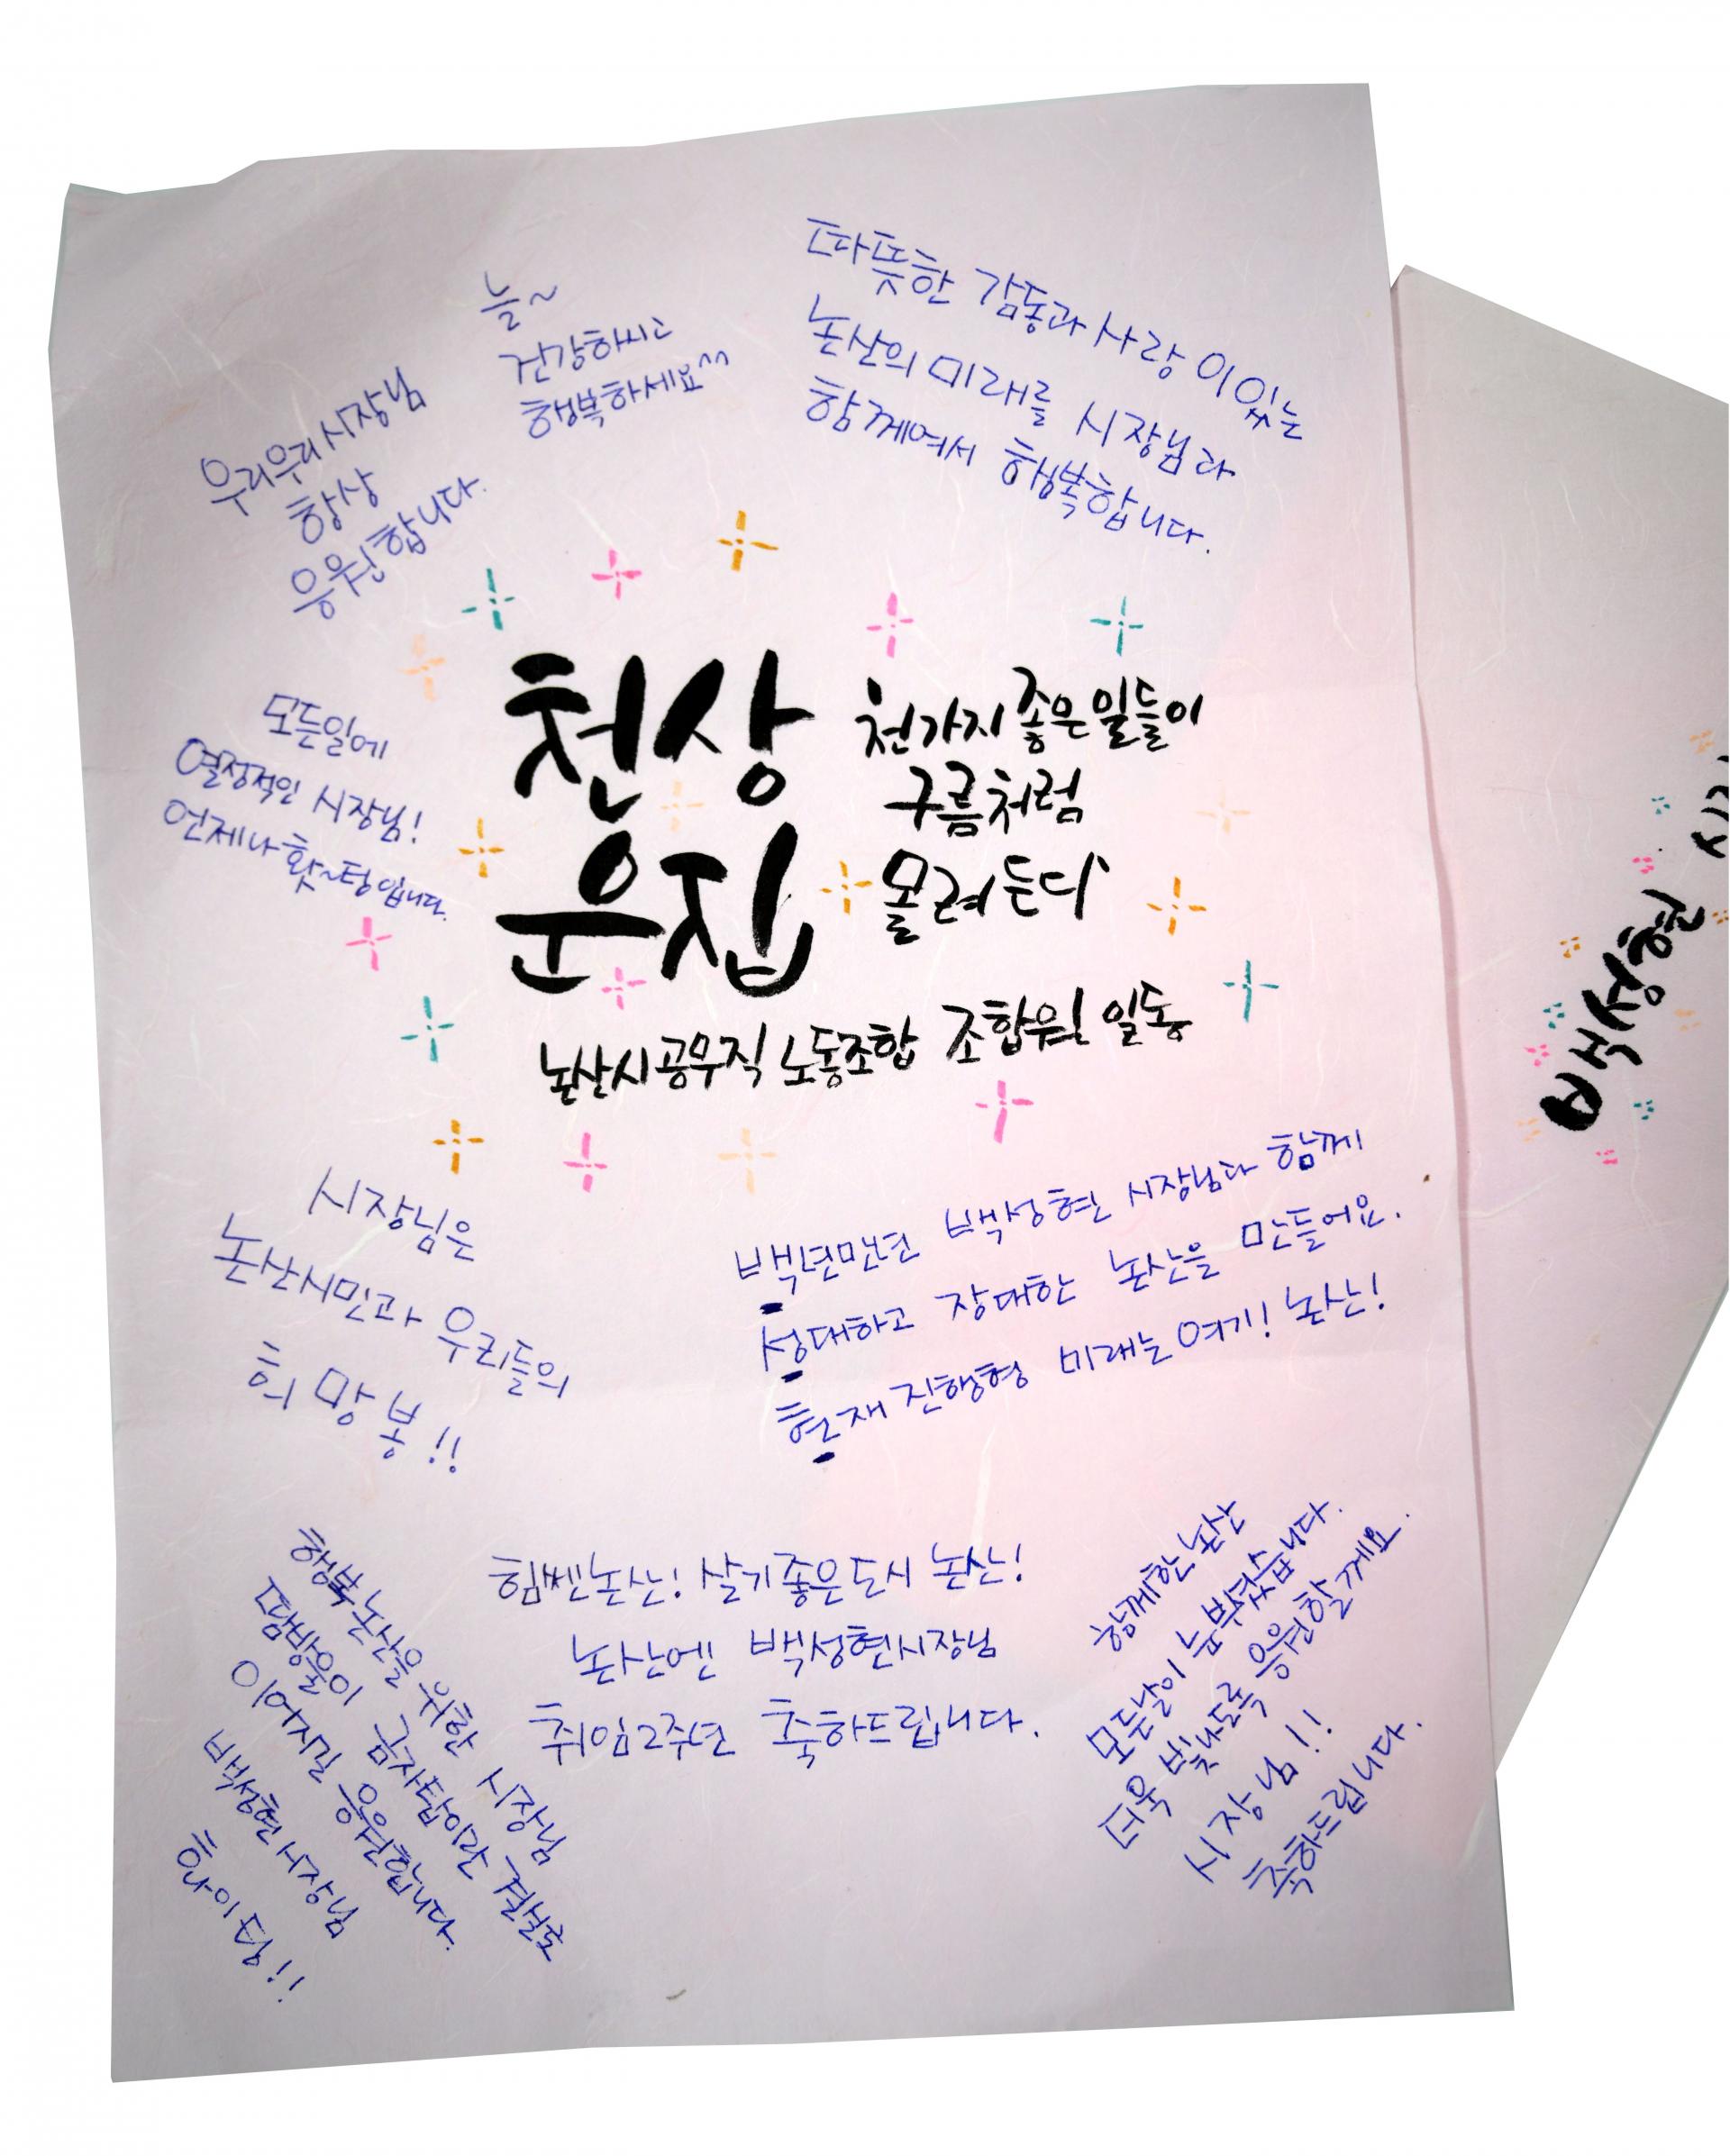 늘~
건강하시고
행복하세요^^
따뜻한 감동과 사랑이 있는
논산의 미래를 시장님과
함께여서 행복합니다.
우리우리 시장님
항상
응원합니다.
천상
운집
천가지 좋은 일들이
구름처럼
몰려든다
논산시공무직 노동조합 조합원 일동
모든일에
열정적인 시장님!
언제나 홧~팅입니다.
백성현
시장님은
논산시민과 우리들의
희망봉!!
백년만년 백성현 시장님과 함께
성대하고 장대한 논산을 만들어요.
현재진행형 미래는 여기! 논산!
힘쎈논산! 살기좋은도시 논산!
논산엔 백성현시장님
취임2주년 축하드립니다.
행복논산을 위한 시장님
땀방울이 금자탑이란 결실로
이어지길 응원합니다.
백성현 시장님
화이팅!!
함께한 논산
모든날이 눈부셨습니다.
더욱 빛나도록 응원할게요.
시장님!!
축하드립니다.